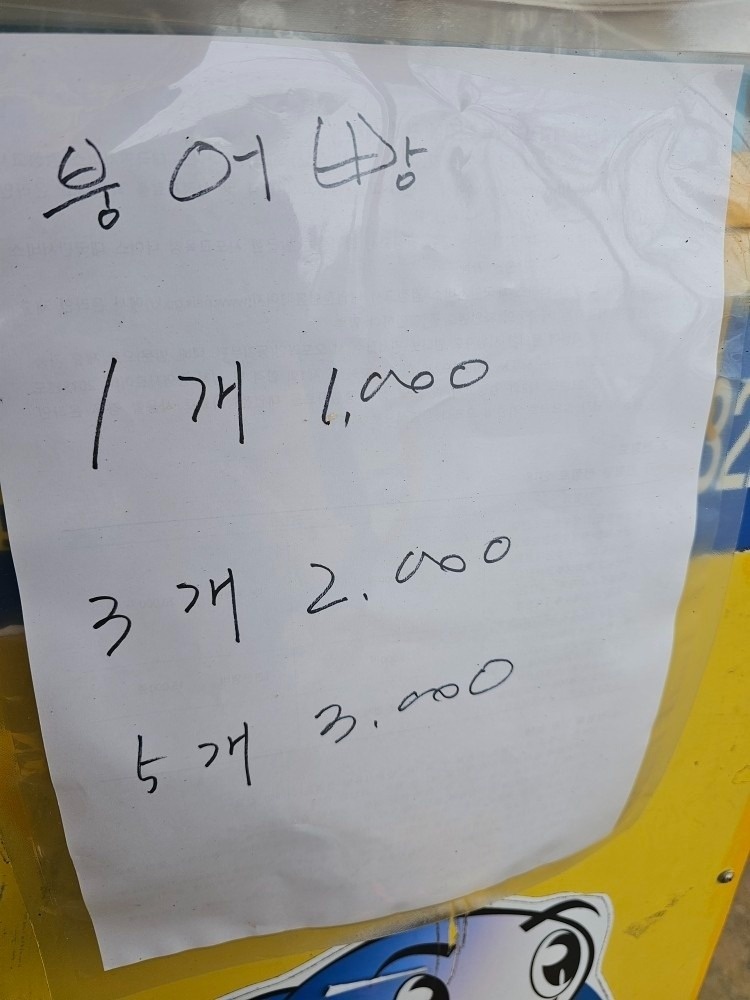 붕어빵
1개 1,000
3개 2.000
5개 3.000
32